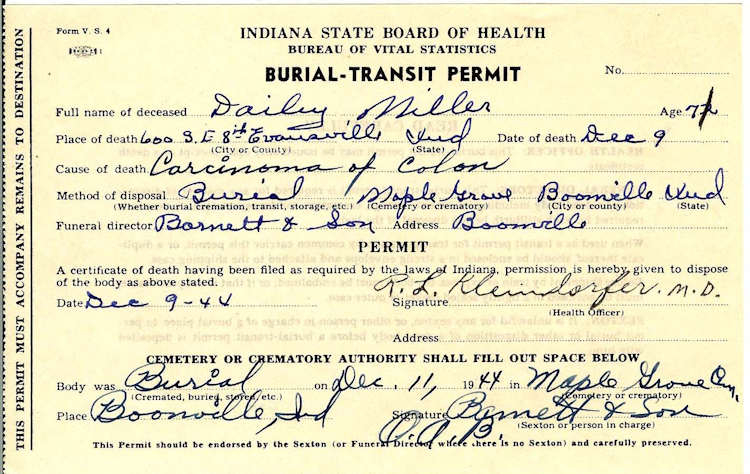 Form V. S. 4
INDIANA STATE BOARD OF HEALTH
BUREAU OF VITAL STATISTICS
BURIAL-TRANSIT PERMIT
No.
Full name of deceased Dailey Miller Age 72
Place of death 600 S. E 8th Evansville Ind Date of death Dec 9
(City or County) (State)
Cause of death Carcinoma of Colon
Method of disposal Burial Maple Grove Boonville Ind
(Whether burial cremation, transit, storage, etc.) (Cemetery or crematory) (City or County) (State)
Funeral director Barnett & Son Address Boonville
PERMIT
A certificate of death having been filed as required by the laws of Indiana, permission is hereby given to dispose
of the body as above stated.
R. L. Kleindorfer M.D.
Date Dec 9-44 Signature
(Health Officer)
Address
CEMETERY OR CREMATORY AUTHORITY SHALL FILL OUT SPACE BELOW
Body was Burial on Dec. 11, 1944 in Maple Grove Cem.
(Cremated, buried, stored, etc.) (Cemetery or crematory)
Place Boonville, Ind Signature Barnett & Son
(Sexton or person in charge)
This Permit should be endorsed by the Sexton (or Funeral Director where there is no Sexton) and carefully preserved.
THIS PERMIT MUST ACCOMPANY REMAINS TO DESTINATION